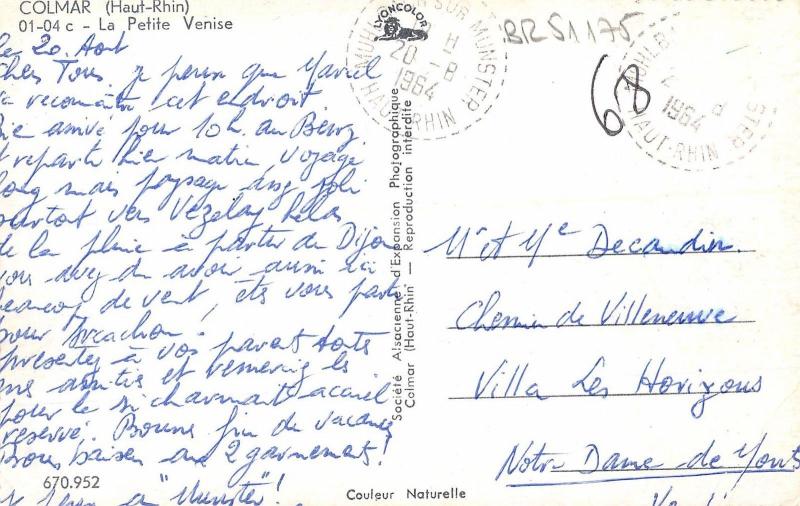 COLMAR (Haut-Rhin)
01-04 c - La Petite Venise
LYONCOLOR
le 20 Aout
Chers Tous je pense que Marcel
va reconnaitre cet endroit
arrivé pour 10h. au
et repartis hier matin, voyage
long mais paysage joli
surtout vers Vezelay, hélas
de la pluie à partir de Dijon
vous avez du avoir aussi
beaucoup de vent, êtes vous partis
pour Arcachon?
présentez à vos parents
nos amitiés et remerciez les
pour le si charmant accueil
reservé. Bonne fin de vacances
Bons baisers aux 2 garnements!
"Munster"!
670.952
Couleur Naturelle
Société Alsacienne d'Expansion Photographique
Colmar (Haut-Rhin) — Reproduction interdite
SUR MUNSTER
20 - 8
1964
HAUT-RHIN
BRS1175
68
1964
HAUT-RHIN
Mr et Me Decaudin.
Chemin de Villeneuve
Villa Les Horizons
Notre Dame de Monts